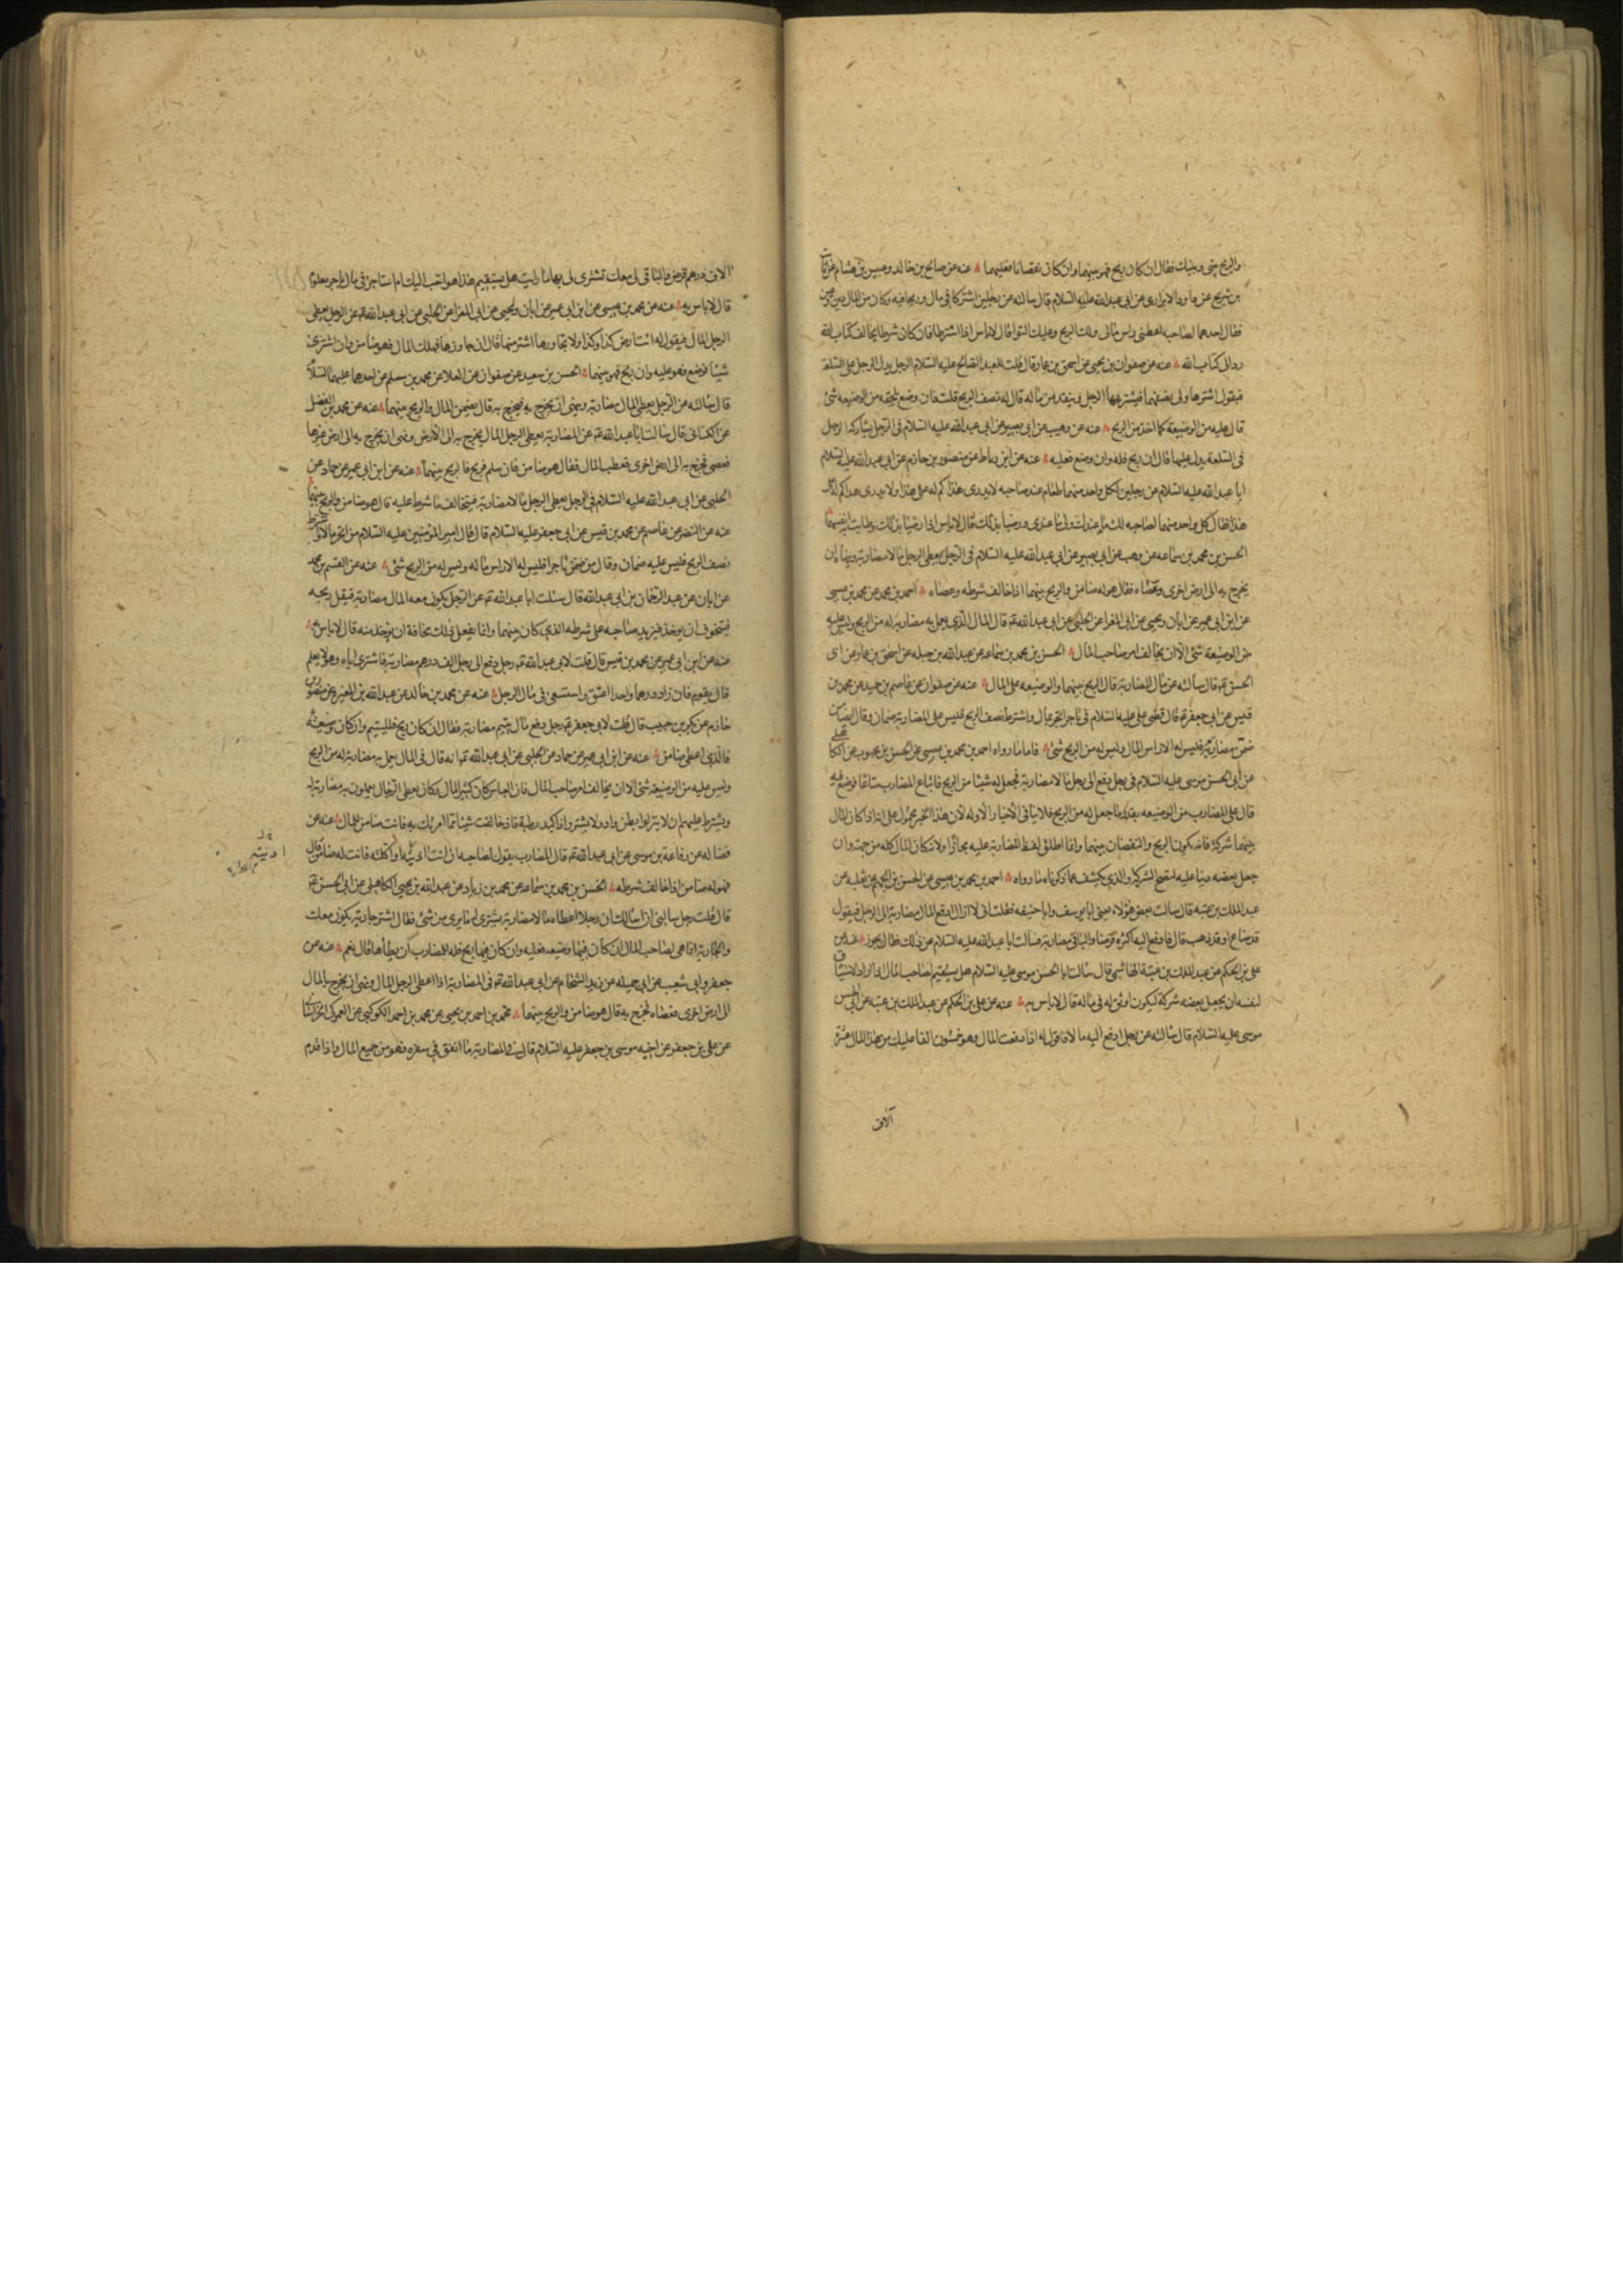 والربح بيني وبينك فقال ان كان ربح فهو بينهما وان كان نقصانا فعليهما عنه عن صالح بن خالد وعبيس بن هشام عن ثابت
بن شريح عن داود الابزارى عن ابى عبدالله عليه السلام قال سالته عن رجلين اشتركا فى مال وربحا فيه وكان من المال دين وعين
فقال احدهما لصاحبه اعطنى راس مالى ولك الربح وعليك التوا قال لاباس اذا اشترطا فان كان شرطا يخالف كتاب الله
رد الى كتاب الله عنه عن صفوان بن يحيى عن اسحق بن عمار قال قلت للعبد الصالح عليه السلام الرجل يدل الرجل على السلعة
فيقول اشترها ولى نصفها فيشتريها الرجل وينقد من ماله قال له نصف الربح قلت فان وضع يلحقه من الوضيعه شئ
قال عليه من الوضيعة كما اخذ من الربح عنه عن وهيب عن ابى بصير عن ابى عبدالله عليه السلام فى الرجل يشاركه الرجل
فى السلعة يدل عليها قال ان ربح فله وان وضع فعليه عنه عن ابن رباط عن منصور بن حازم عن ابى عبدالله عليه السلام
ابا عبدالله عليه السلام عن رجلين لكل واحد منهما طعام عند صاحبه لايدرى هذا كم له على هذا ولا يدرى هذا كم له على
هذا فقال كل واحد منهما لصاحبه لك ما عندك ولى ما عندى ورضيا بذلك قال لاباس اذا رضيا بذلك وطابت انفسهما
الحسن بن محمد بن سماعه عن وهيب عن ابى بصير عن ابى عبدالله عليه السلام فى الرجل يعطى الرجل مالا مضاربة وينهاه ان
يخرج به الى ارض اخرى وعصاه فقال هو له ضامن والربح بينهما اذا خالف شرطه وعصاه احمد بن محمد عن محمد بن عيسى
عن ابن ابى عمير عن ابان ويحيى عن ابى المغرا عن الحلبى عن ابى عبدالله ع قال المال الذى يعمل به مضاربة له من الربح وليس عليه
من الوضيعة شئ الا ان يخالف امر صاحب المال الحسن بن محمد بن سماعه عن عبدالله بن جبله عن اسحق بن عمار عن ابى
الحسن ع قال سالته عن مال المضاربة قال الربح بينهما والوضيعه على المال عنه عن صفوان عن عاصم بن حميد عن محمد بن
قيس عن ابى جعفر ع قال قضى على عليه السلام فى تاجر اتجر بمال واشترط نصف الربح فليس على المضاربة ضمان وقال ايضا من
ضمن مضاربه فليس له الا راس المال وليس له من الربح شئ فاما ما رواه احمد بن محمد بن عيسى عن الحسن بن محبوب عن الكاهلى
عن ابى الحسن موسى عليه السلام فى رجل دفع الى رجل مالا مضاربة فجعل له شيئا من الربح فابتاع المضارب متاعا فوضع فيه
قال على المضارب من الوضيعه بقدر ما جعل له من الربح فلا ينافى الاخبار الاوله لان هذا الخبر محمول على انه اذا كان المال
بينهما شركة فانه يكون الربح والنقصان بينهما وانما اطلق لفظ المضاربة عليه مجازا ولان كان المال كله من جهته وان
جعل بعضه دينا عليه لتصح الشركة والذى يكشف عما ذكرناه ما رواه احمد بن محمد بن عيسى عن الحسن بن الجهم عن ثعلبه عن
عبدالملك بن عتبه قال سالت بعض هؤلاء يعنى ابا يوسف وابا حنيفه فقلت انى لا ازال ادفع المال مضاربة الى الرجل فيقول
قد ضاع او قد ذهب قال فادفع اليه اكثره قرضا والباقى مضاربة فسالت ابا عبدالله عليه السلام عن ذلك فقال يجوز عنه عن
على بن الحكم عن عبدالملك بن عتبة الهاشمى قال سالت ابا الحسن موسى عليه السلام هل يستقيم لصاحب المال اذا اراد الاستيثاق
لنفسه ان يجعل بعضه شركة ليكون اوثق له فى ماله قال لاباس به عنه عن على بن الحكم عن عبدالملك بن عتبه عن ابى الحسن
موسى عليه السلام قال سالته عن رجل ادفع اليه مالا فاقول له اذا دفعت المال وهو خمسون الفا عليك من هذا المال عشرة
آلاف
الاف درهم قرض والباقى لى معك تشترى لى بها ما رايت هل يستقيم هذا هو احب اليك ام استاجره فى مال باجر معلوم
قال لاباس به عنه عن محمد بن عيسى عن ابن ابى عمير عن ابان ويحيى عن ابى المغرا عن الحلبى عن ابى عبدالله ع عن الرجل يعطى
الرجل المال فيقول له ائت ارض كذا وكذا ولا تجاوزها اشتر منها قال ان جاوزها فهلك المال فهو ضامن وان اشترى
شيئا فوضع فهو عليه وان ربح فهو بينهما الحسن بن سعيد عن صفوان عن العلا عن محمد بن مسلم عن احدهما عليهما السلام
قال سالته عن الرجل يعطى المال مضاربة وينهى ان يخرج به فيخرج به قال يضمن المال والربح بينهما عنه عن محمد بن الفضل
عن الكنانى قال سالت ابا عبدالله ع عن المضاربة يعطى الرجل المال يخرج به الى الارض ونهى ان يخرج به الى ارض غيرها
فعصى فخرج به الى ارض اخرى فعطب المال فقال هو ضامن فان سلم فربح فالربح بينهما عنه عن ابن ابى عمير عن حماد عن
الحلبى عن ابى عبدالله عليه السلام فى الرجل يعطى الرجل مالا مضاربة فيخالف ما شرط عليه قال هو ضامن والربح بينهما
عنه عن النضر عن عاصم عن محمد بن قيس عن ابى جعفر عليه السلام قال قال امير المؤمنين عليه السلام من اتجر مالا واشترط
نصف الربح فليس عليه ضمان وقال من ضمن تاجرا فليس له الا راس ماله وليس له من الربح شئ عنه عن القسم بن محمد
عن ابان عن عبدالرحمان بن ابى عبدالله قال سئلت ابا عبدالله ع عن الرجل يكون معه المال مضاربة فيقل ربحه
فيتخوف ان يوخذ فيزيد صاحبه على شرطه الذى كان بينهما وانما يفعل ذلك مخافة ان يؤخذ منه قال لاباس به
عنه عن ابن ابى عمير عن محمد بن قيس قال قلت لابى عبدالله ع رجل دفع الى رجل الف درهم مضاربة فاشترى اباه وهو لا يعلم
قال يقوم فان زاد درهما واحدا اعتق واستسعى فى مال الرجل عنه عن محمد بن خالد عن عبدالله بن المغيره عن منصور بن
حازم عن بكر بن حبيب قال قلت لابى جعفر ع رجل دفع مال يتيم مضاربة فقال ان كان ربح فلليتيم وان كان وضيعة
فالذى اعطى ضامن عنه عن ابن ابى عمير عن حماد عن الحلبى عن ابى عبدالله ع انه قال فى المال يعمل به مضاربة له من الربح
وليس عليه من الوضيعة شئ الا ان يخالف امر صاحب المال فان العباس كان كثير المال وكان يعطى الرجال يعملون به مضاربة
ويشترط عليهم ان لا ينزلوا بطن واد ولا يشتروا ذا كبد رطبة فان خالفت شيئا مما امرتك به فانت ضامن للمال عنه عن
فضاله عن رفاعة بن موسى عن ابى عبدالله ع قال المضارب يقول لصاحبه ان انت او اكلته فانت له ضامن قال
فهو له ضامن اذا خالف شرطه الحسن بن محمد بن سماعه عن محمد بن زياد عن عبدالله بن يحيى الكاهلى عن ابى الحسن ع
قال قلت رجل سالنى ان اسالك ان رجلا اعطاه مالا مضاربة يشترى له ما يرى من شئ فقال اشتر جارية تكون معك
والجارية انما هى لصاحب المال ان كان فيها وضيعه فعليه وان كان فيها ربح فله للمضارب ان يطأها قال نعم عنه عن
جعفر وابى شعيب عن ابى جميله عن زيد الشحام عن ابى عبدالله ع فى المضاربة اذا اعطى الرجل المال ونهى ان يخرج بالمال
الى ارض اخرى فعصاه فخرج به قال هو ضامن والربح بينهما محمد بن احمد بن يحيى عن محمد بن احمد الكوكبى عن العمركى الخراسانى
عن على بن جعفر عن اخيه موسى بن جعفر عليه السلام قال فى المضاربة ما انفق فى سفره فهو من جميع المال واذا قدم